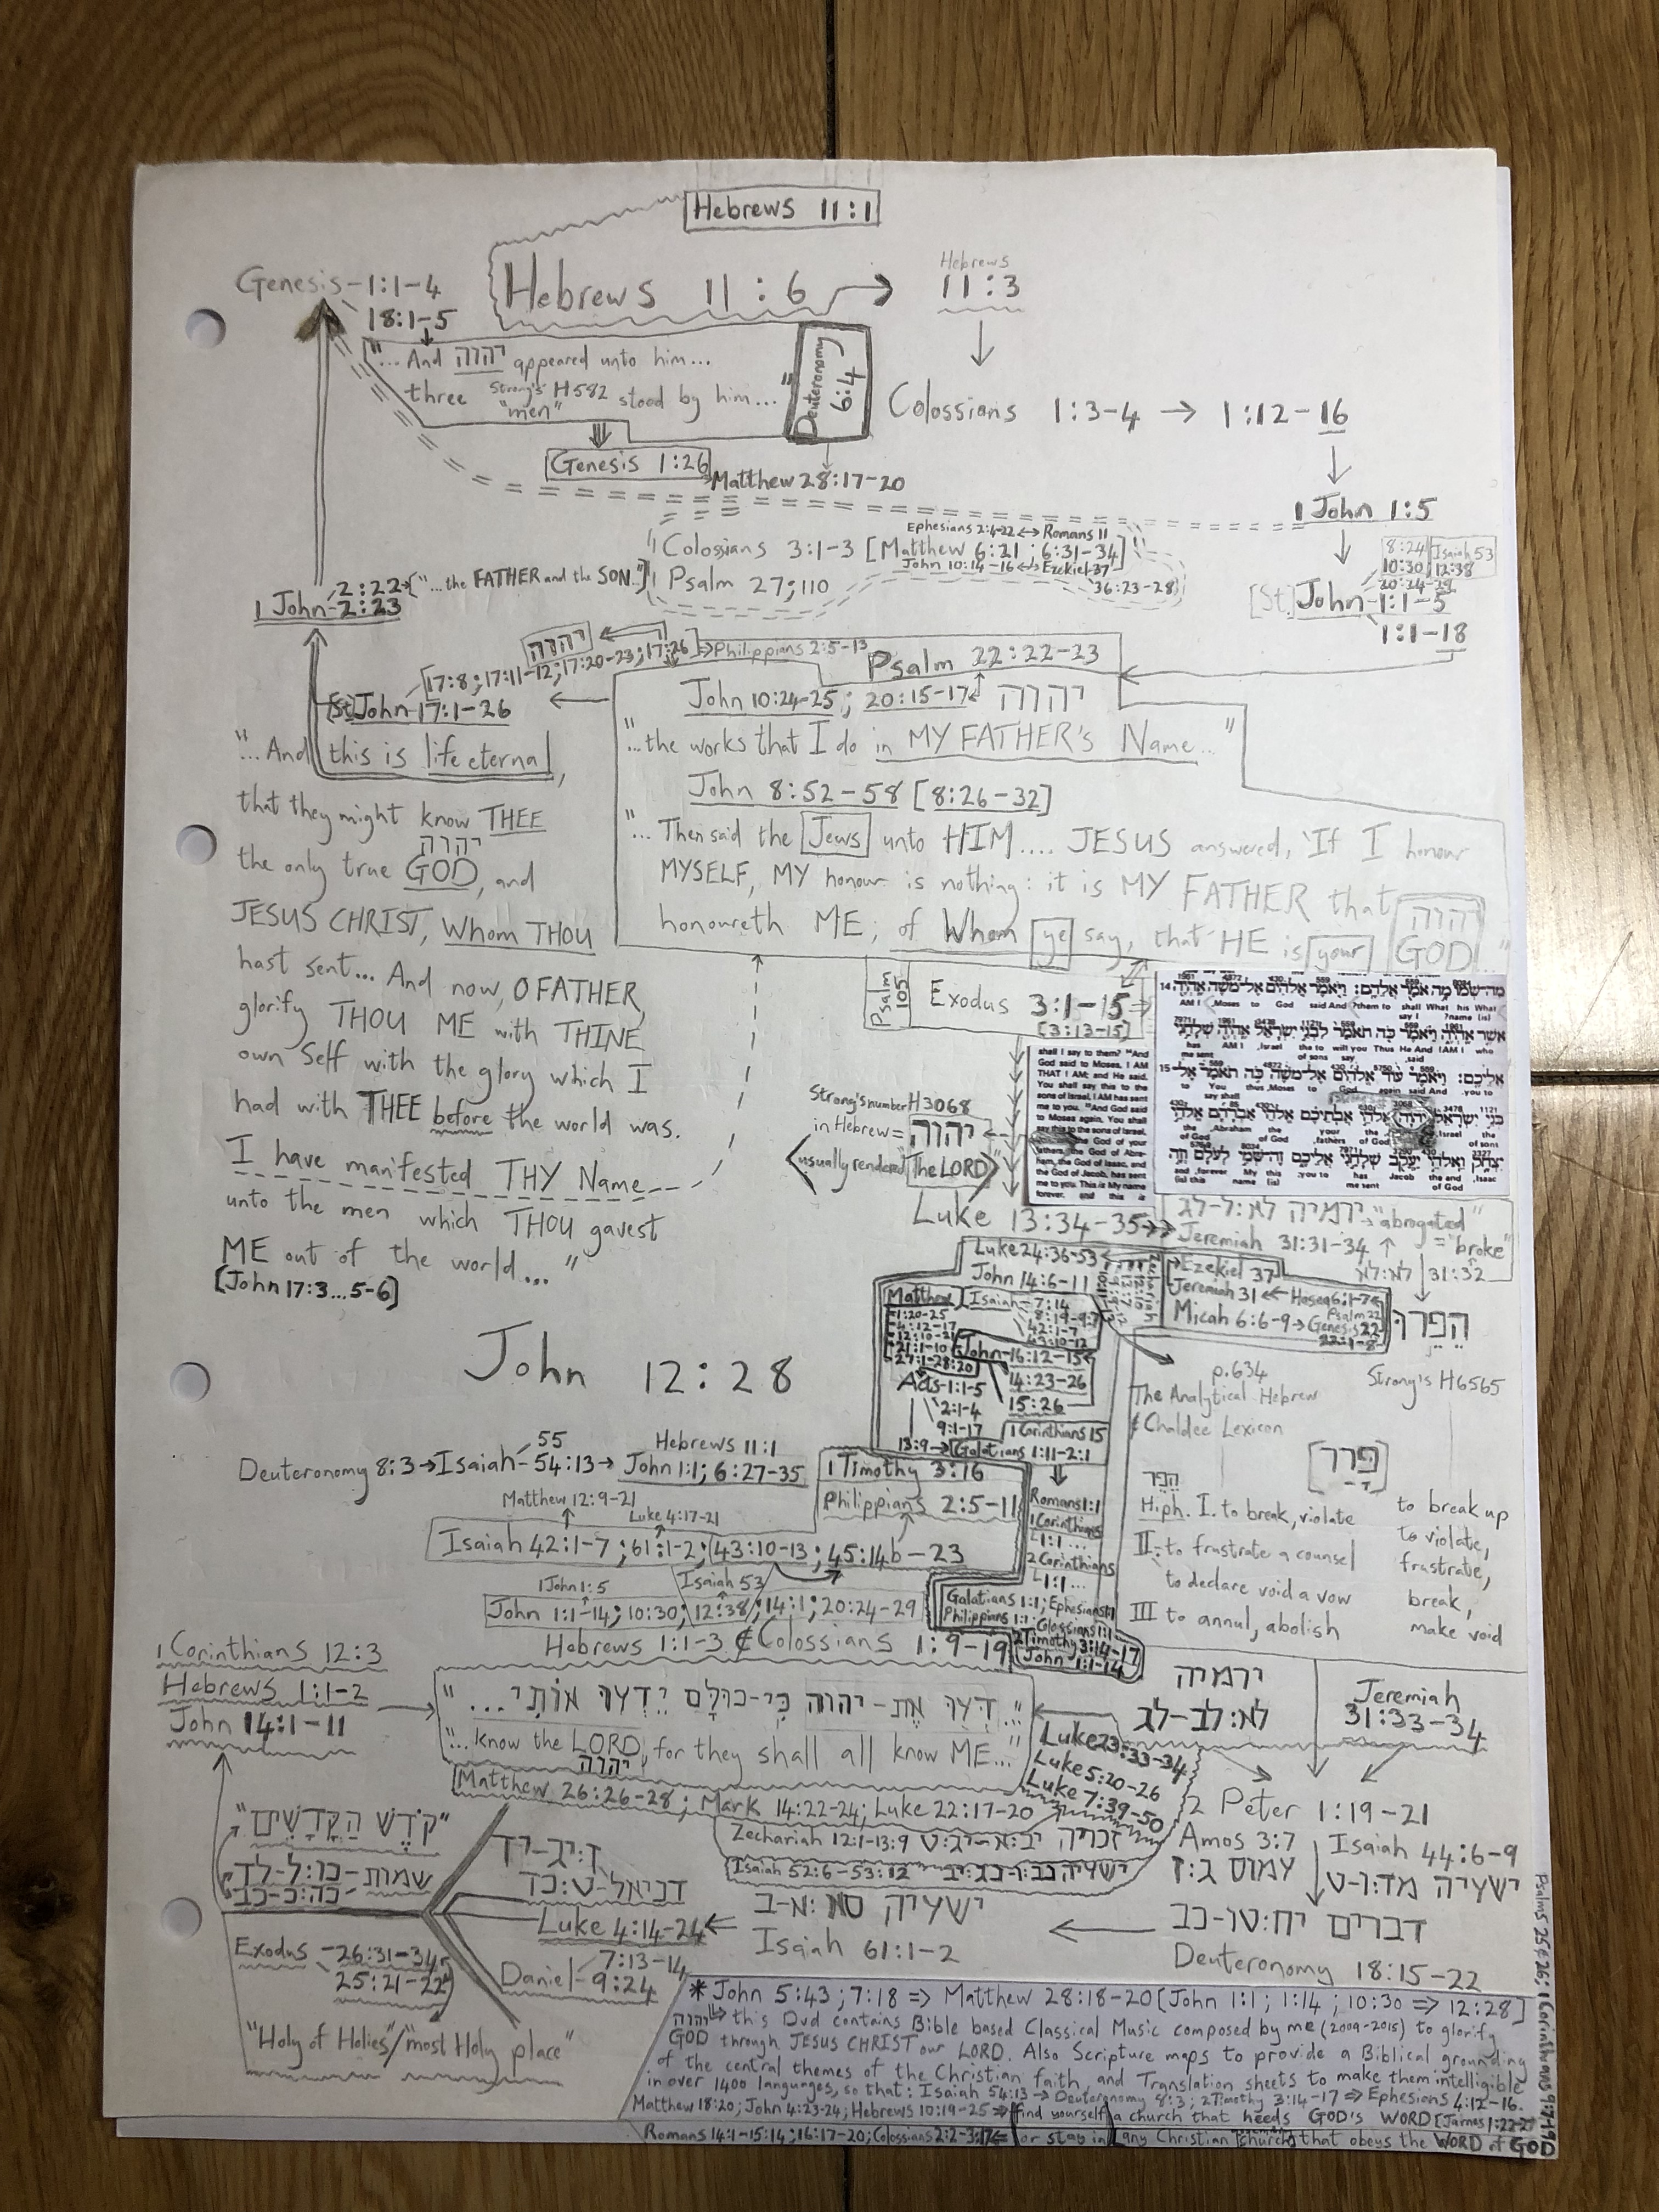 Hebrews 11:1
Genesis-1:1-4
18:1-5
Hebrews 11:6 → Hebrews 11:3
"...And יהוה appeared unto him...
three Strong's H582 "men" stood by him..."
Deuteronomy 6:4
Genesis 1:26
Matthew 28:17-20
Colossians 1:3-4 → 1:12-16
1 John 1:5
Ephesians 2:4-22 ↔ Romans 11
Colossians 3:1-3 [Matthew 6:21; 6:31-34]
John 10:14-16 ↔ Ezekiel 37
Psalm 27;110
36:23-28
8:24 Isaiah 53
10:30 12:38
20:24-29
[St] John-1:1-5
1:1-18
2:22→["...the FATHER and the SON."]
1 John-2:23
יהוה
[17:8;17:11-12;17:20-23;17:26]→Philippians 2:5-13
[St]John-17:1-26
Psalm 22:22-23
John 10:24-25; 20:15-17 יהוה
"...the works that I do in MY FATHER's Name..."
John 8:52-58 [8:26-32]
"...Then said the Jews unto HIM.... JESUS answered, 'If I honour
MYSELF, MY honour is nothing: it is MY FATHER that
honoureth ME; of Whom ye say, that HE is your
יהוה
GOD..."
"...And this is life eternal,
that they might know THEE
יהוה
the only true GOD, and
JESUS CHRIST, Whom THOU
hast sent... And now, O FATHER,
glorify THOU ME with THINE
own Self with the glory which I
had with THEE before the world was.
I have manifested THY Name
unto the men which THOU gavest
ME out of the world..."
[John 17:3...5-6]
Psalm 105
Exodus 3:1-15
[3:13-15]
shall I say to them? And
God said to Moses, I AM
THAT I AM; and He said,
You shall say this to the
sons of Israel, I AM has sent
me to you. And God said
to Moses again, You shall
say this to the sons of Israel,
the God of your
fathers, the God of Abra-
ham, the God of Isaac, and
the God of Jacob, has sent
me to you. This is My name
forever, and this is
Strong's number H3068
in Hebrew = יהוה
usually rendered "The LORD"
Luke 13:34-35
ירמיה לא:ל-לג
Jeremiah 31:31-34
"abrogated"
="broke"
לא:לא 31:32
הֵפֵרוּ
Strong's H6565
Luke 24:36-53
John 14:6-11
Ezekiel 37
Jeremiah 31 ← Hosea 6:1-7
Psalm 22
Micah 6:6-9→Genesis 22
22:1-8
Matthew
1:20-25
4:12-17
12:10-21
21:1-10
27:1-28:20
Isaiah-7:14
8:19-9:7
42:1-7
43:10-12
John-16:12-15
14:23-26
15:26
Acts-1:1-5
2:1-4
9:1-17
13:9→Galatians 1:11-2:1
1 Corinthians 15
p.634
The Analytical Hebrew
& Chaldee Lexicon
[פָּרַר]
הֵפֵר
Hiph. I. to break, violate
II. to frustrate a counsel
to declare void a vow
III to annul, abolish
to break up
to violate,
frustrate,
break,
make void
John 12:28
55
Deuteronomy 8:3→Isaiah-54:13→
Hebrews 11:1
John 1:1; 6:27-35
1 Timothy 3:16
Philippians 2:5-11
Matthew 12:9-21
Luke 4:17-21
Isaiah 42:1-7;61:1-2;43:10-13;45:14b-23
1 John 1:5
Isaiah 53
John 1:1-14;10:30;12:38;14:1;20:24-29
Romans 1:1
1 Corinthians
1:1...
2 Corinthians
1:1...
Galatians 1:1; Ephesians 1:1
Philippians 1:1; Colossians 1:1
2 Timothy 3:14-17
John 1:1-14
Hebrews 1:1-3 & Colossians 1:9-19
1 Corinthians 12:3
Hebrews 1:1-2
John 14:1-11
"...דְּעוּ אֶת-יהוה כִּי-כוּלָּם יֵדְעוּ אוֹתִי..."
"...know the LORD, for they shall all know ME..."
יהוה
ירמיה
לא:לב-לג
Jeremiah
31:33-34
Luke 23:33-34
Luke 5:20-26
Luke 7:39-50
Matthew 26:26-28; Mark 14:22-24; Luke 22:17-20
Zechariah 12:1-13:9 זכריה יב:א-יג:ט
Isaiah 52:6-53:12
2 Peter 1:19-21
Amos 3:7
עמוס ג:ז
Isaiah 44:6-9
ישעיה מד:ו-ט
"קֹדֶשׁ הַקֳּדָשִׁים"
שמות-כו:ל-לד
כה:כ-כב
ז:יג-יד
דניאל-ט:כד
Luke 4:14-24
ישעיה סא:א-ב
Isaiah 61:1-2
דברים יח:טו-כב
Deuteronomy 18:15-22
Exodus-26:31-34
25:21-22
7:13-14
Daniel-9:24
"Holy of Holies"/"most Holy place"
*John 5:43; 7:18 ⇒ Matthew 28:18-20[John 1:1; 1:14; 10:30 ⇒ 12:28]
יהוה this Dvd contains Bible based Classical Music composed by me (2009-2015) to glorify
GOD through JESUS CHRIST our LORD. Also Scripture maps to provide a Biblical grounding
of the central themes of the Christian faith, and Translation sheets to make them intelligible
in over 1400 languages, so that: Isaiah 54:13 → Deuteronomy 8:3; 2 Timothy 3:14-17 ⇒ Ephesians 4:12-16.
Matthew 18:20; John 4:23-24; Hebrews 10:19-25 ⇒ find yourself a church that heeds GOD'S WORD [James 1:22-2
Romans 14:1-15:14;16:17-20;Colossians 2:2-3:17 ⇐ or stay in any Christian church that obeys the WORD of GOD
Psalms 25 & 26; 1 Corinthians